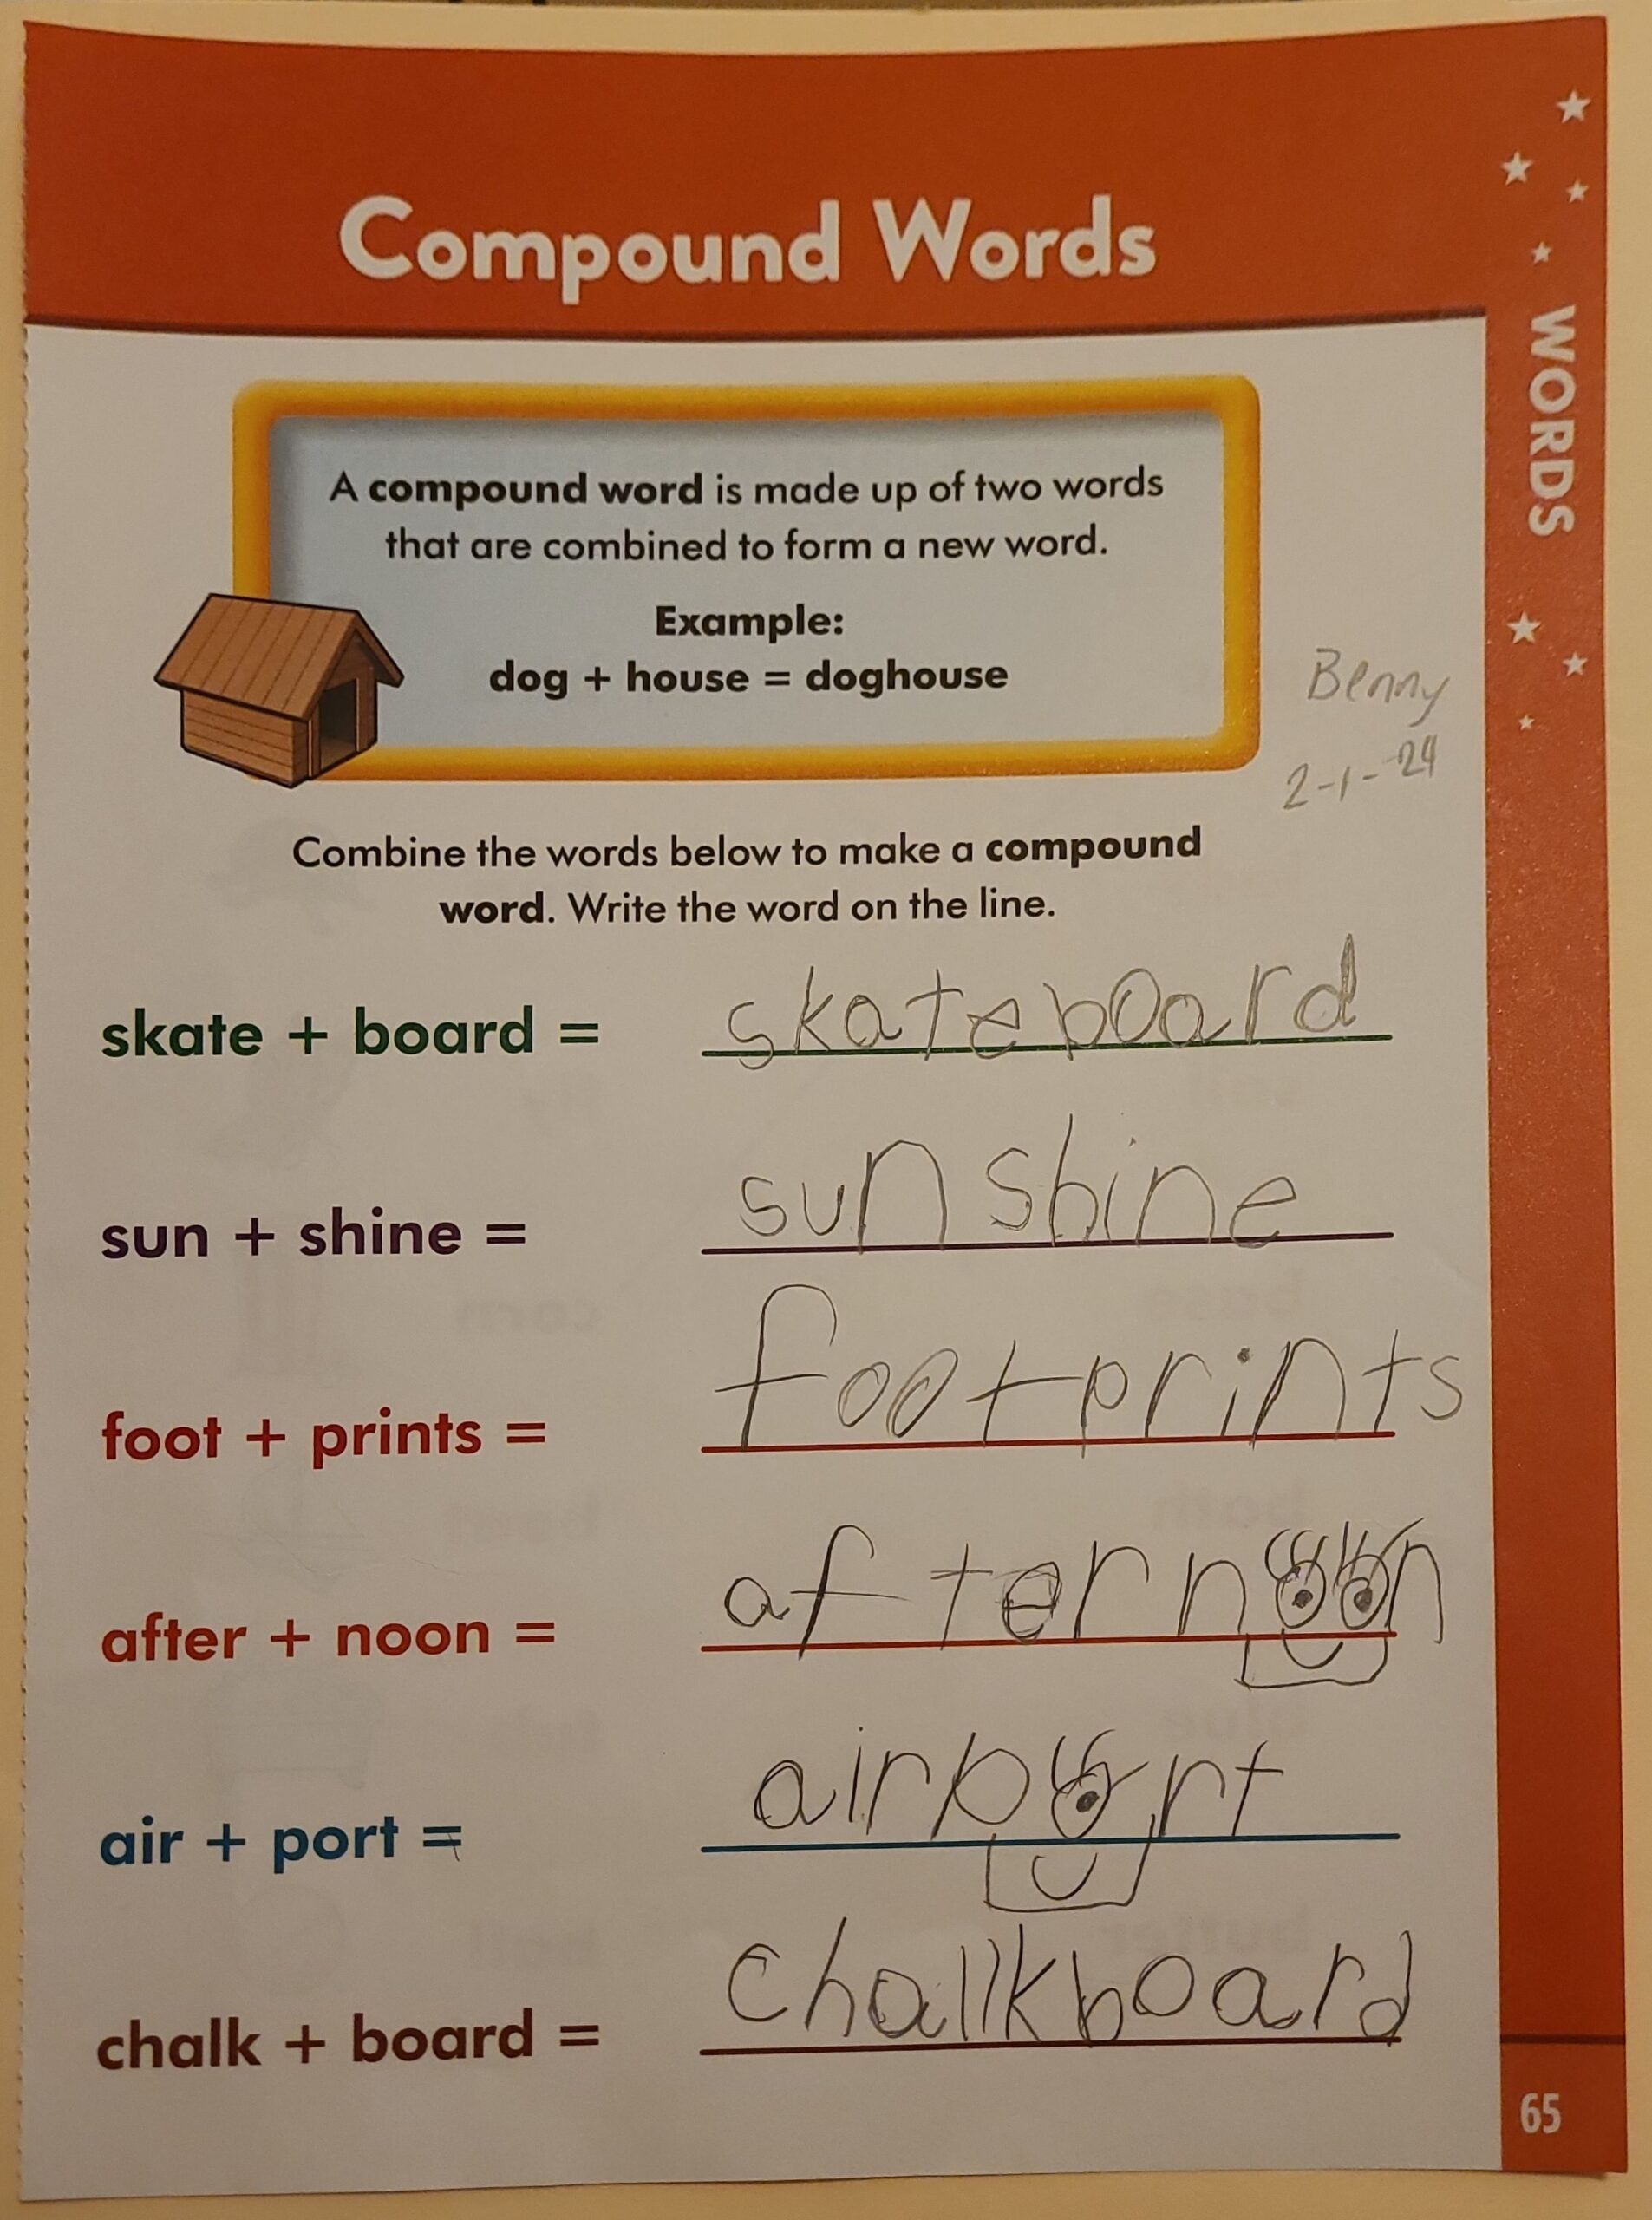 Compound Words
WORDS
A compound word is made up of two words
that are combined to form a new word.
Example:
dog + house = doghouse
Benny
2-1-24
Combine the words below to make a compound
word. Write the word on the line.
skate + board = skateboard
sun + shine = sunshine
foot + prints = footprints
after + noon = afternoon
air + port = airport
chalk + board = challkboard
65